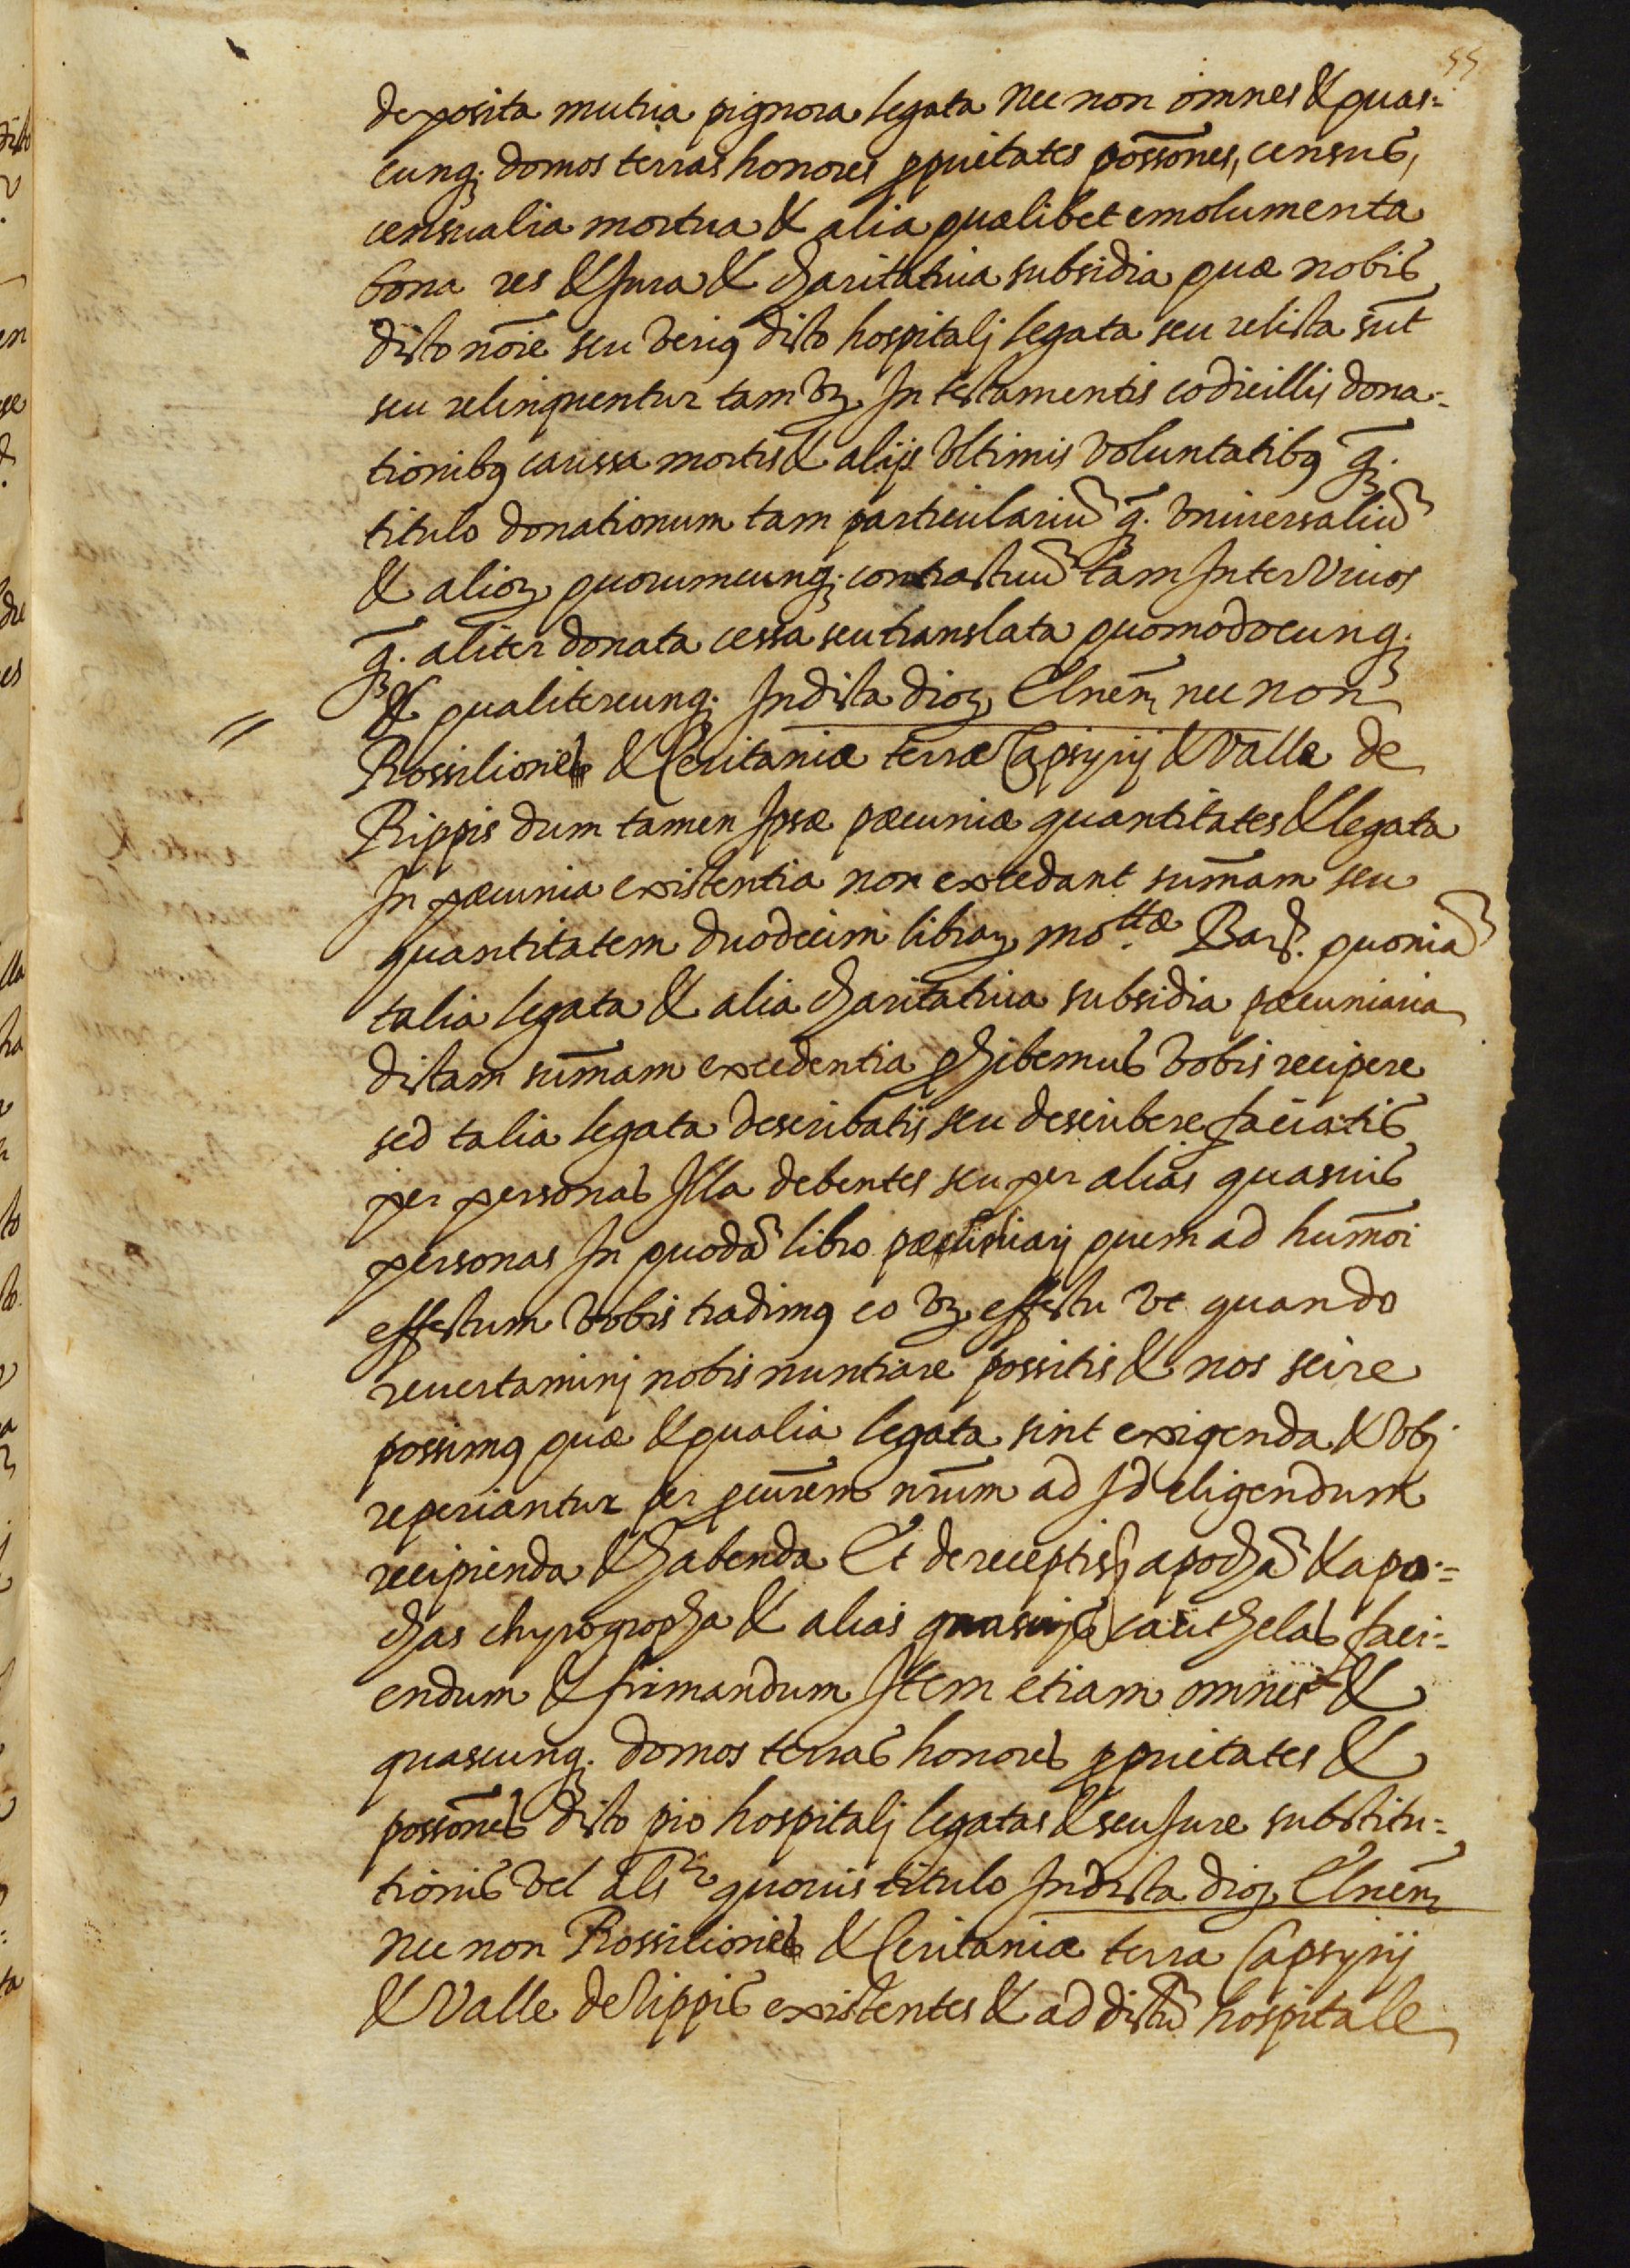 55
deposita mutua pignora legata nec non omnes & quas=
cunq; domos terras honores ꝓprietates possōnes, census,
censualia mortua & alia quælibet emolumenta
bona res & Jura & charitatiua subsidia quæ nobis
dicto nōie seu verius dicto hospitalj legata seu relicta sūt
seu relinquentur tam vꝫ In testamentis codicillis dona=
tionibꝰ caussa mortis & alijs vltimis voluntatibꝰ q̃;
titulo donationum tam particulariū q̃; vniuersaliū
& alioꝝ quorumcunq; contractuū tam Inter viuos
q̃; aliter donata cessa seu translata quomodocunq;
& qualitercunq; In dicta dioꝝ Elneñ nec non
Rossilionis & Ceritaniæ terræ Capsyrij & Valle de
Rippis dum tamen Ipsæ pæcuniæ quantitates & legata
In pæcunia existentia non excedant sum̄am seu
quantitatem duodecim libraꝝ mo.ttæ Barch. quoniā
talia legata & alia charitatiua subsidia pæcuniaria
dictam sum̄am excedentia ꝓhibemus vobis recipere
sed talia legata describatis seu describere faciatis
per personas Illa debentes seu per alias quasuis
personas In quodā libro pæcuniarj quem ad hum̄oi
effectum vobis tradimꝰ eo vꝫ effectu vt quando
reuertaminj nobis nuntiare possitis & nos scire
possimꝰ quæ & qualia legata sint exigenda & vbj
reperiantur per ꝓcur̄em nr̄um ad Id eligendum
recipienda & habenda Et de receptis apochā & apo=
chas chyrographa & alias quasuis cauthelas faci=
endum & firmandum Item etiam omnes &
quascunq; domos terras honores ꝓprietates &
possōnes dicto pio hospitalj legatas & seu Jure substitu=
tionis vel als̃ quouis titulo In dicta dioꝝ Elneñ
nec non Rossilionis & Ceritaniæ terra Capsyrij
& Valle de Rippis existentes & ad dictū hospitale